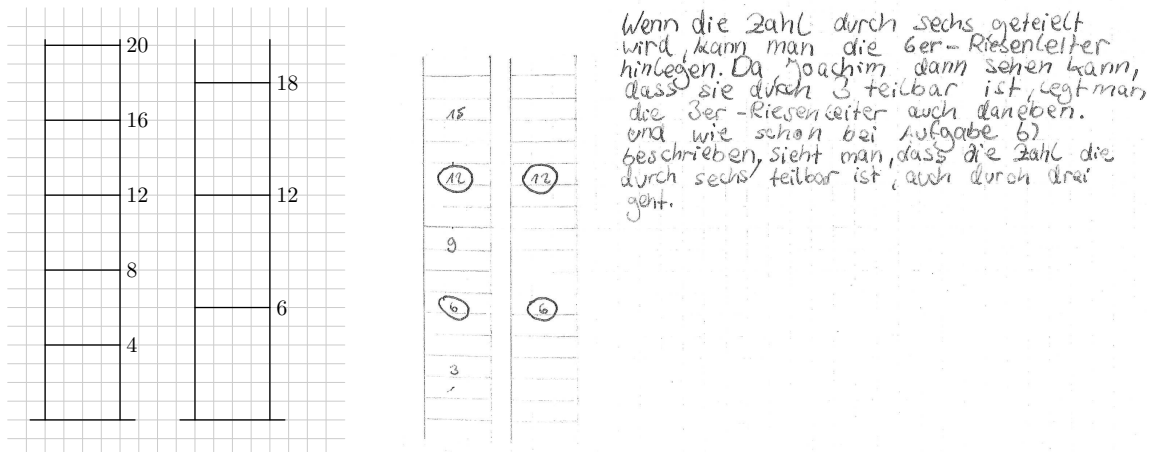 20
18
16
12
12
8
6
4
15
12
12
9
6
6
3
Wenn die Zahl durch sechs geteielt
wird, kann man die 6er-Riesenleiter
hinlegen. Da Joachim dann sehen kann,
dass sie durch 3 teilbar ist, legt man
die 3er-Riesenleiter auch daneben.
und wie schon bei Aufgabe b)
beschrieben, sieht man, dass die Zahl die
durch sechs teilbar ist, auch durch drai
geht.